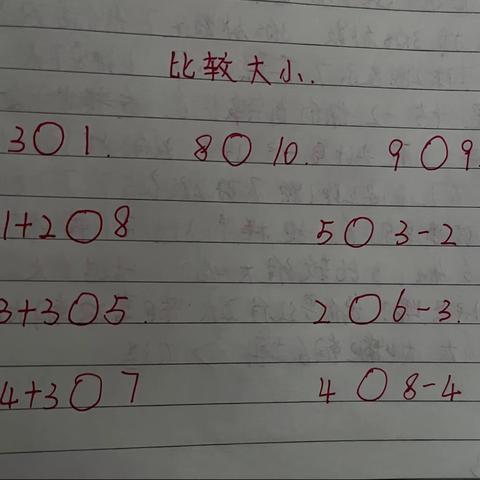 比较大小.
3○1. 8○10. 9○9.
1+2○8 5○3-2
3+3○5. 2○6-3.
4+3○7 4○8-4